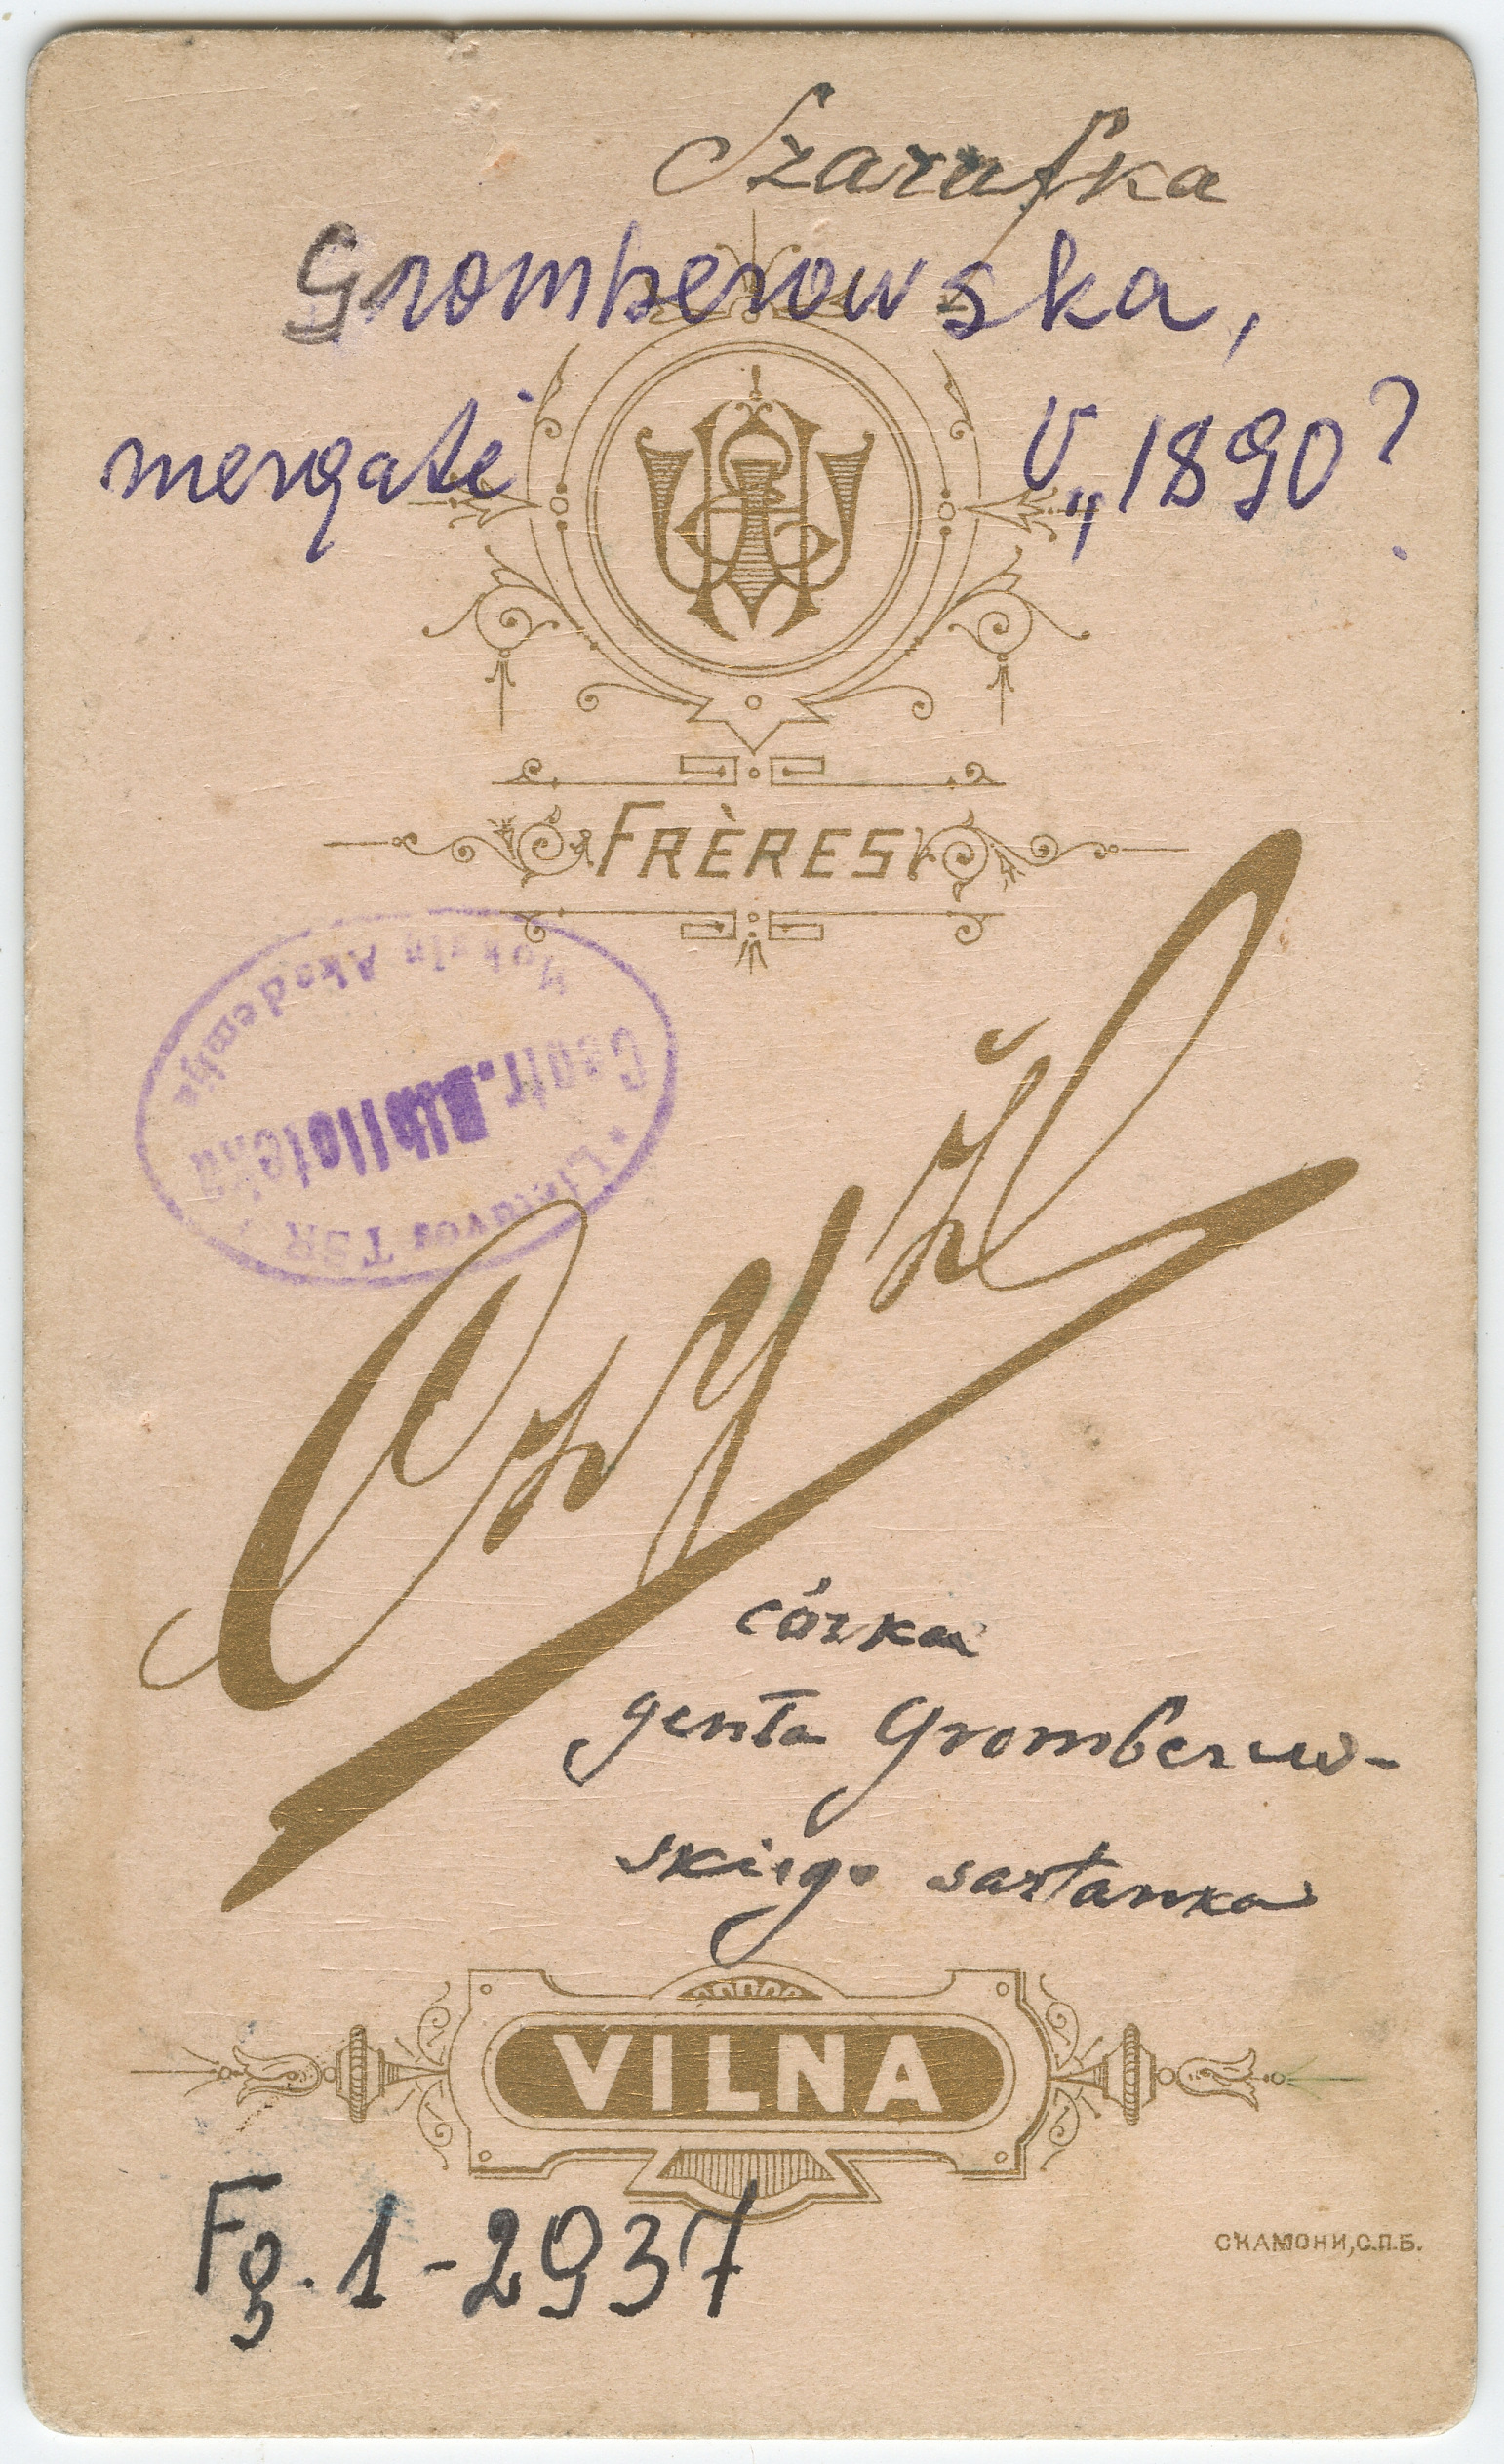 Szarafka
Gromberowska,
mergatė V„ 1890?
FRÈRES
Lietavos TSR
Centr. Biblioteka
Mokslų Akademija
Czyż
córka
genła Gromberow-
skiego
VILNA
Fg. 1-2937
СКАМОНИ, С.П.Б.